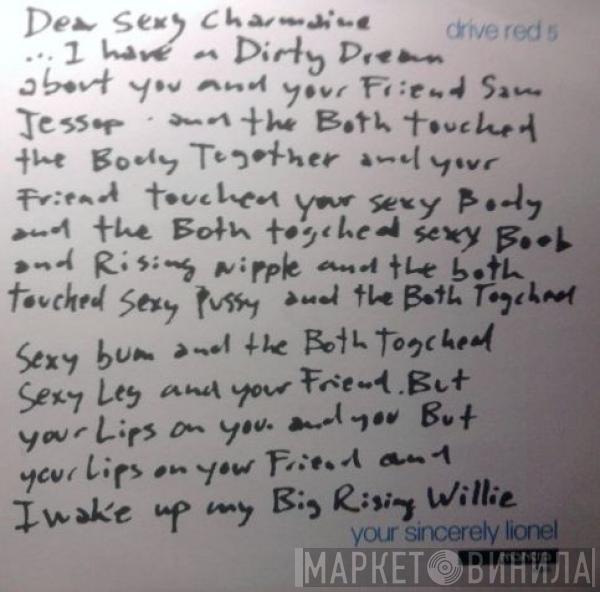 Dear Sexy Charmaine
drive red 5
...I have a Dirty Dream
about you and your Friend Sam
Jessop. and the Both touched
the Body Together and your
Friend touched your sexy Body
and the Both togched sexy Boob
and Rising nipple and the both
touched Sexy Pussy and the Both Togched
Sexy bum and the Both Togched
Sexy Leg and your Friend. But
your Lips on you. and you But
your Lips on your Friend and
I wake up my Big Rising Willie
your sincerely lionel
МАРКЕТ ВИНИЛА